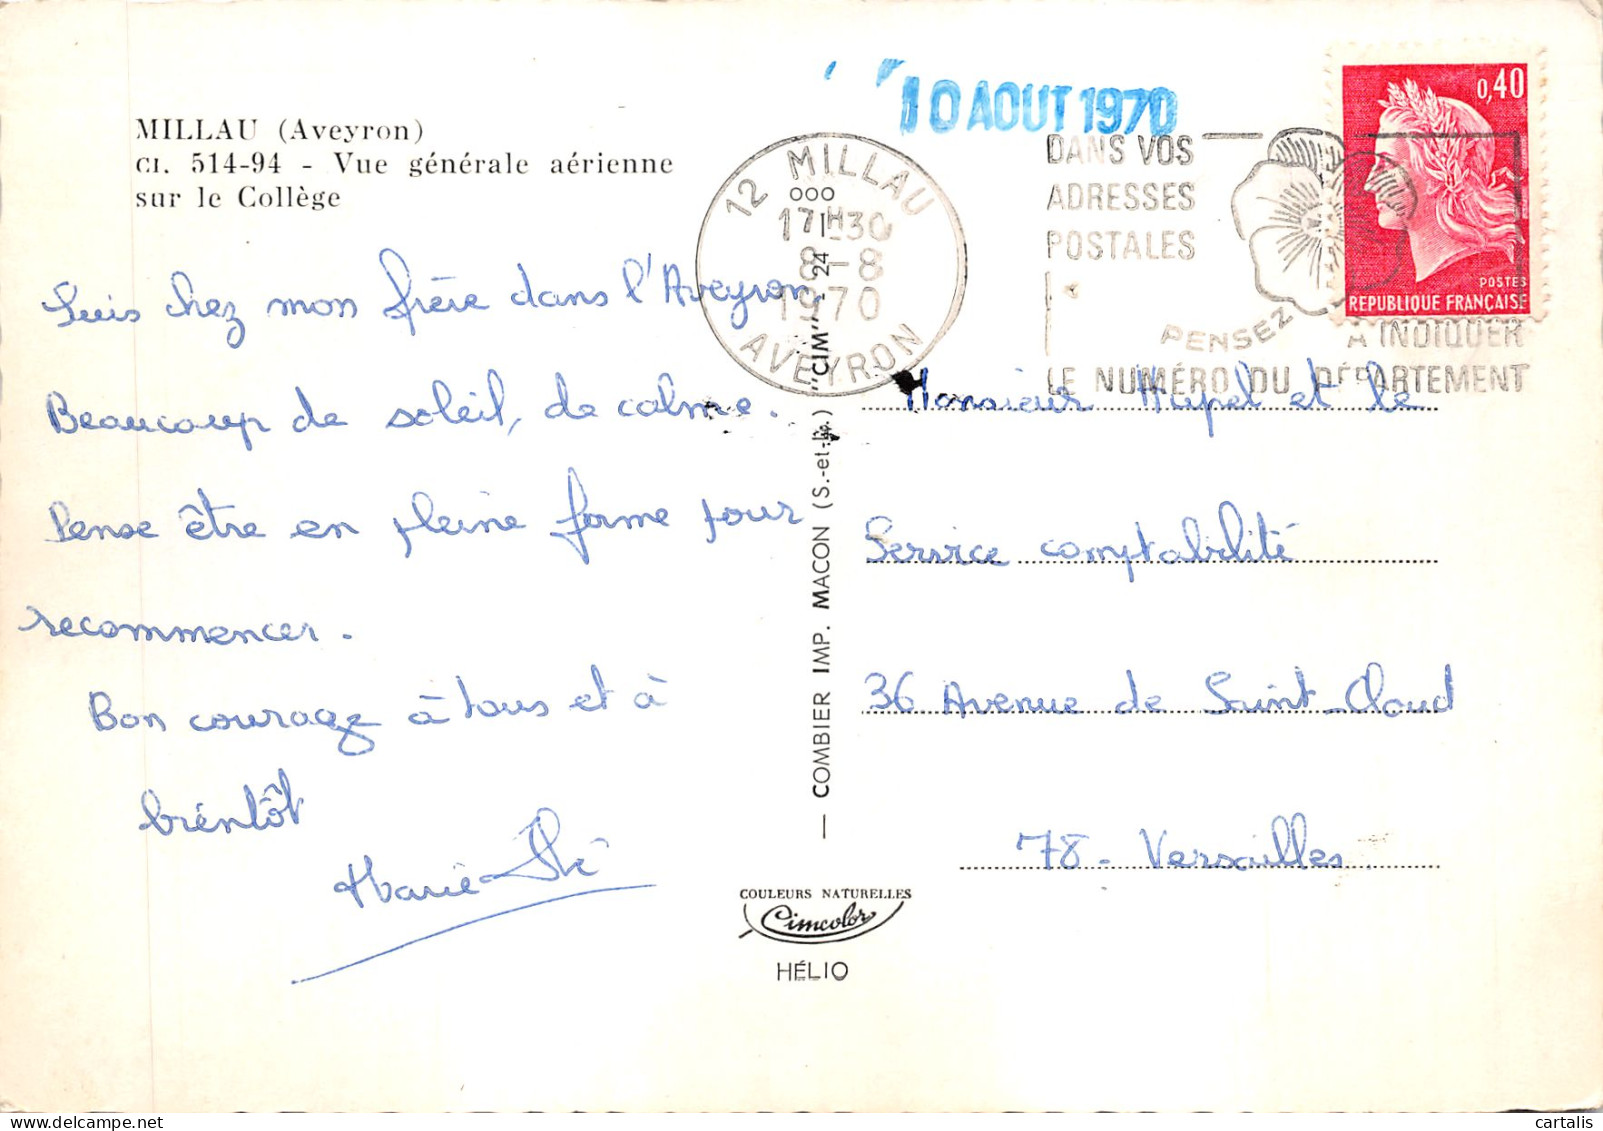 MILLAU (Aveyron)
CI. 514-94 - Vue générale aérienne
sur le Collège
Suis chez mon frère dans l'Aveyron.
Beaucoup de soleil, de calme.
Pense être en pleine forme pour
recommencer.
Bon courage à tous et à
bientôt
Marie
10 AOUT 1970
12 MILLAU
17H30
8-8
1970
AVEYRON
DANS VOS
ADRESSES
POSTALES
PENSEZ
A INDIQUER
LE NUMÉRO DU DÉPARTEMENT
0,40
POSTES
REPUBLIQUE FRANÇAISE
COMBIER IMP. MACON (S.-et-L.) "CIM" 24
Monsieur Hupel et le
Service comptabilité
36 Avenue de Saint-Cloud
78 - Versailles
COULEURS NATURELLES
Cimcolor
HÉLIO
cartalis